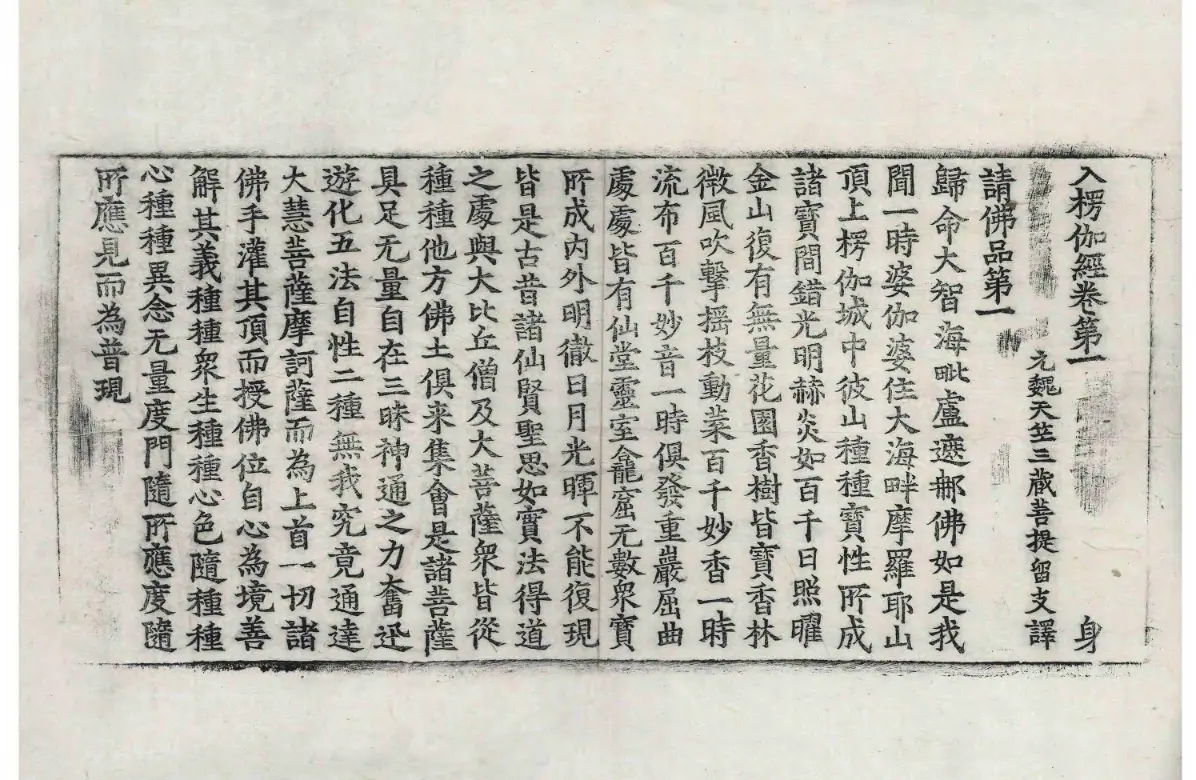 入楞伽經卷第一 身
元魏天竺三藏菩提留支譯
請佛品第一
歸命大智海毗盧遮那佛如是我
聞一時婆伽婆住大海畔摩羅耶山
頂上楞伽城中彼山種種寶性所成
諸寶間錯光明赫炎如百千日照曜
金山復有無量花園香樹皆寶香林
微風吹擊摇枝動葉百千妙香一時
流布百千妙音一時俱發重巖屈曲
處處皆有仙堂靈室龕窟无數衆寶
所成内外明徹日月光暉不能復現
皆是古昔諸仙賢聖思如實法得道
之處與大比丘僧及大菩薩衆皆從
種種他方佛土俱来集會是諸菩薩
具足无量自在三昧神通之力奮迅
遊化五法自性二種無我究竟通達
大慧菩薩摩訶薩而為上首一切諸
佛手灌其頂而授佛位自心為境善
解其義種種衆生種種心色隨種種
心種種異念无量度門隨所應度隨
所應見而為普現